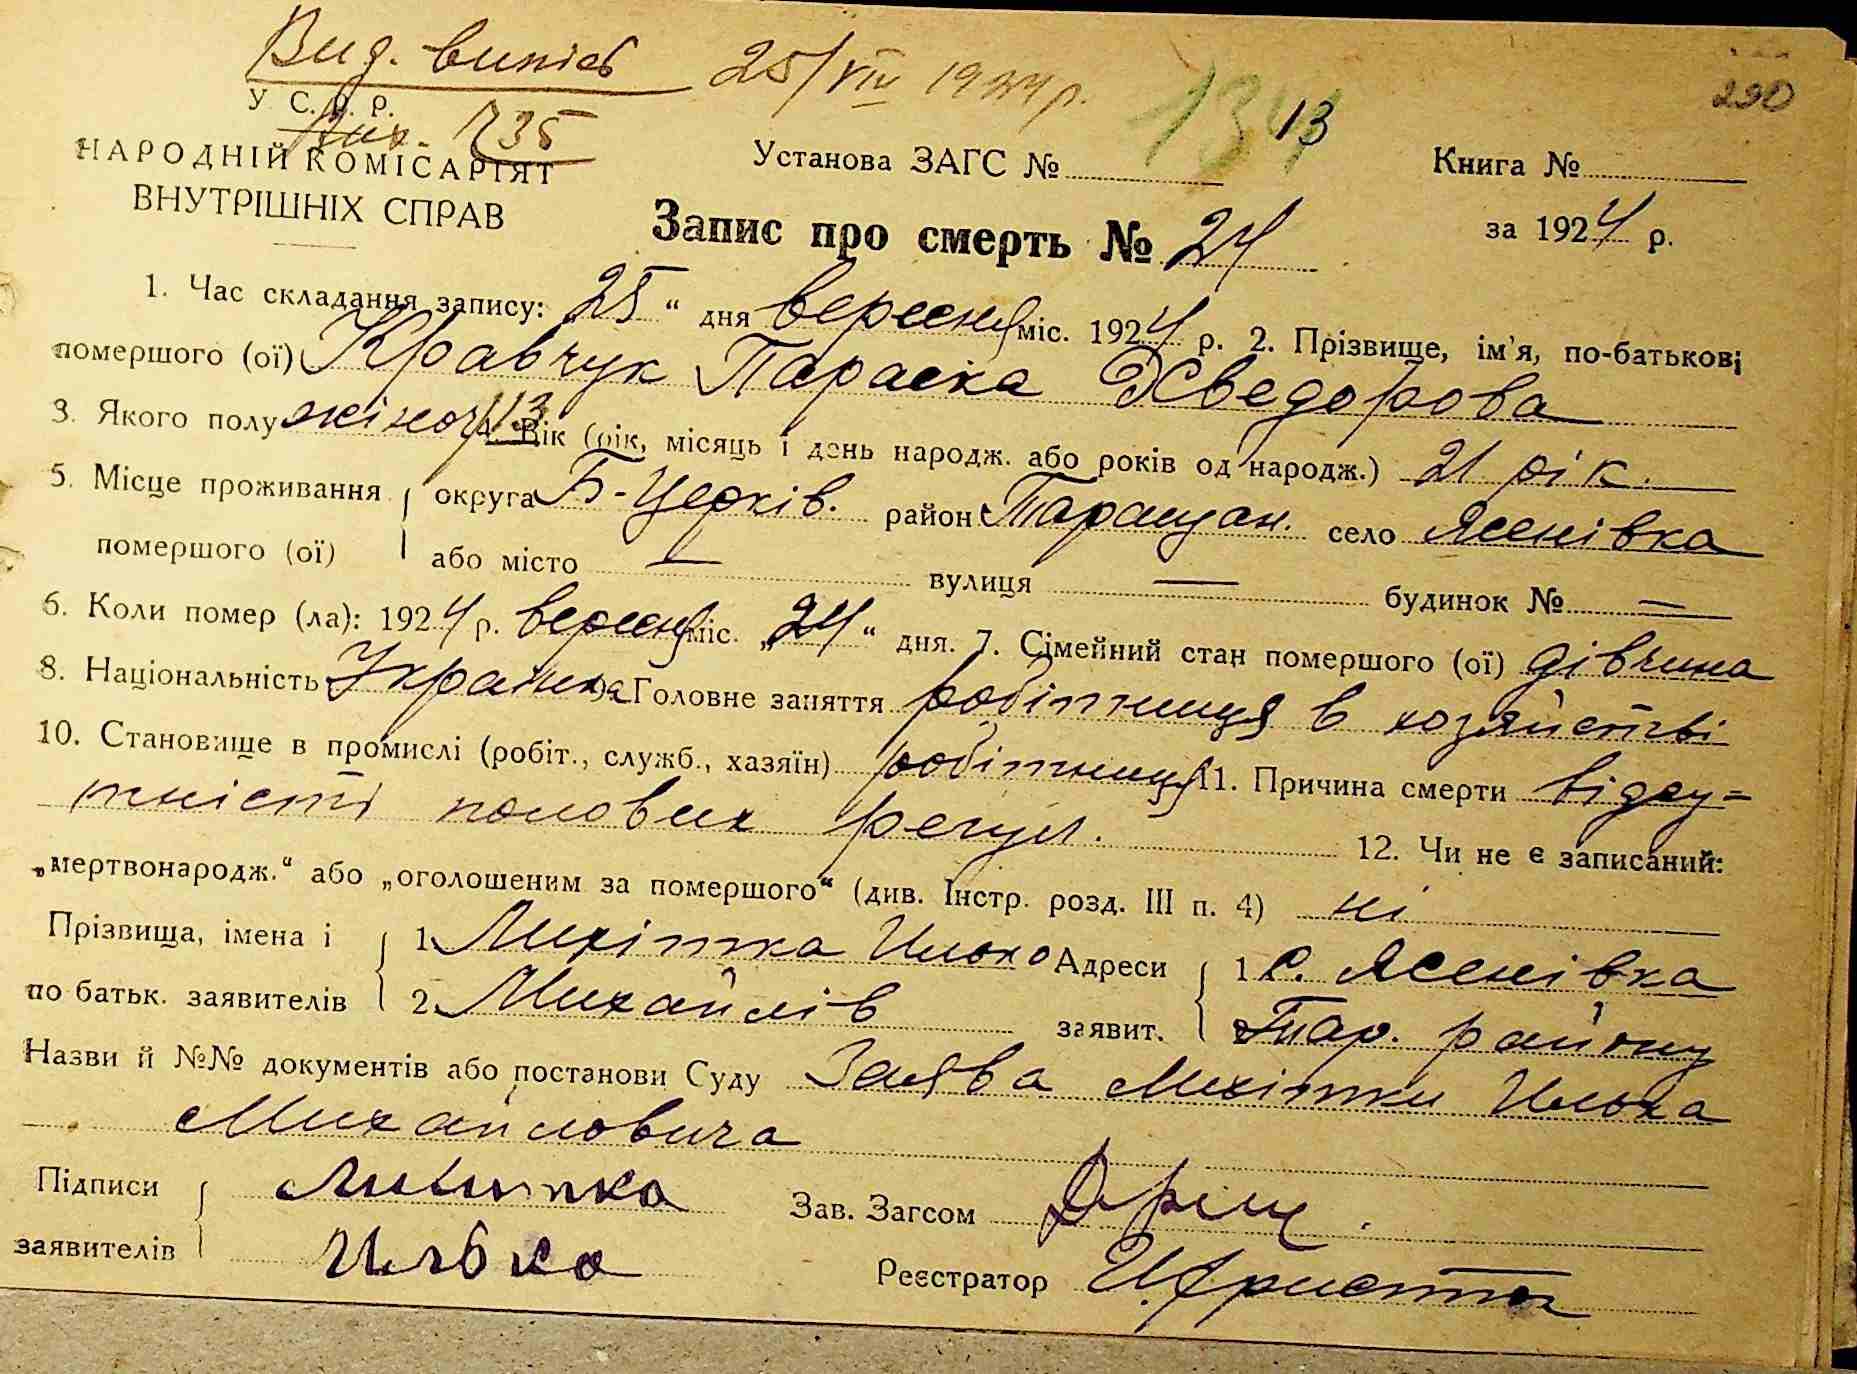 Вид. випис 25/VIII 1944 р.
290
У. С. Р. Р.
735
134
13
НАРОДНІЙ КОМІСАРІЯТ
ВНУТРІШНІХ СПРАВ
Установа ЗАГС №
Книга №
Запис про смерть № 24
за 1924 р.
1. Час складання запису: „25“ дня вересня міс. 1924 р. 2. Прізвище, ім'я, по-батькові
помершого (ої) Кравчук Параска Хведорова
3. Якого полу жіноч 113 4. Вік (рік, місяць і день народж. або років од народж.) 21 рік.
5. Місце проживання помершого (ої) округа Б-Церків. район Таращан. село Ясенівка
або місто — вулиця — будинок № —
6. Коли помер (ла): 1924 р. вересня міс. „24“ дня. 7. Сімейний стан помершого (ої) дівчина
8. Національність Українка 9. Головне заняття робітниця в хозяйстві
10. Становище в промислі (робіт., служб., хазяїн) робітниця 11. Причина смерти відсу=
тність половых регул.
12. Чи не є записаний:
„мертвонародж.“ або „оголошеним за помершого“ (див. Інстр. розд. III п. 4) ні
Прізвища, імена і по батьк. заявителів 1. Микітка Илько Адреси заявит. 1 с. Ясенівка
2. Михайлів 2 Тар. району
Назви й №№ документів або постанови Суду Заява Микітки Илька
Михайловича
Підписи заявителів Микитка
Илько
Зав. Загсом
Реєстратор